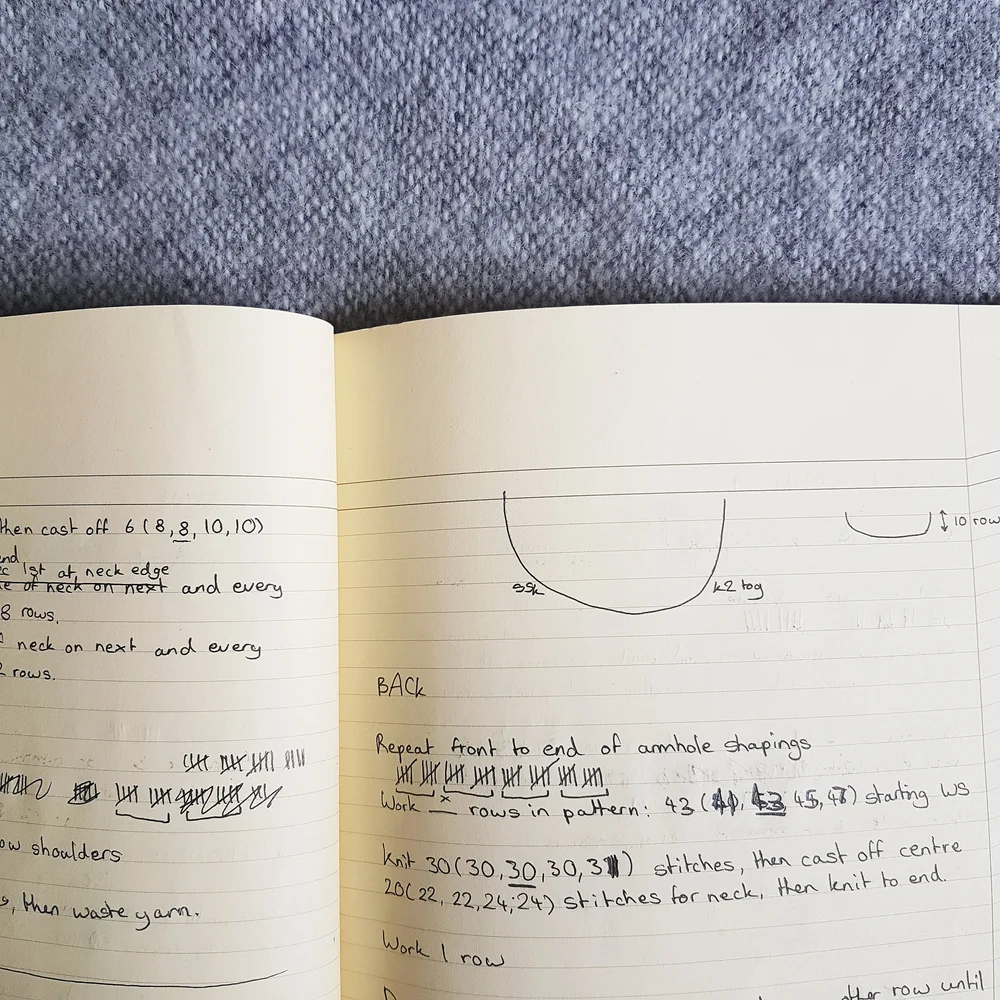 then cast off 6 (8, 8, 10, 10)
1st at neck edge
of neck on next and every
8 rows.
neck on next and every
rows.
shoulders
, then waste yarn.
ssk
k2 tog
10 row
BACK
Repeat front to end of armhole shapings
x
Work __ rows in pattern: 43 (44, 43, 45, 47) starting WS
Knit 30 (30, 30, 30, 31) stitches, then cast off centre
20 (22, 22, 24, 24) stitches for neck, then knit to end.
Work 1 row
other row until